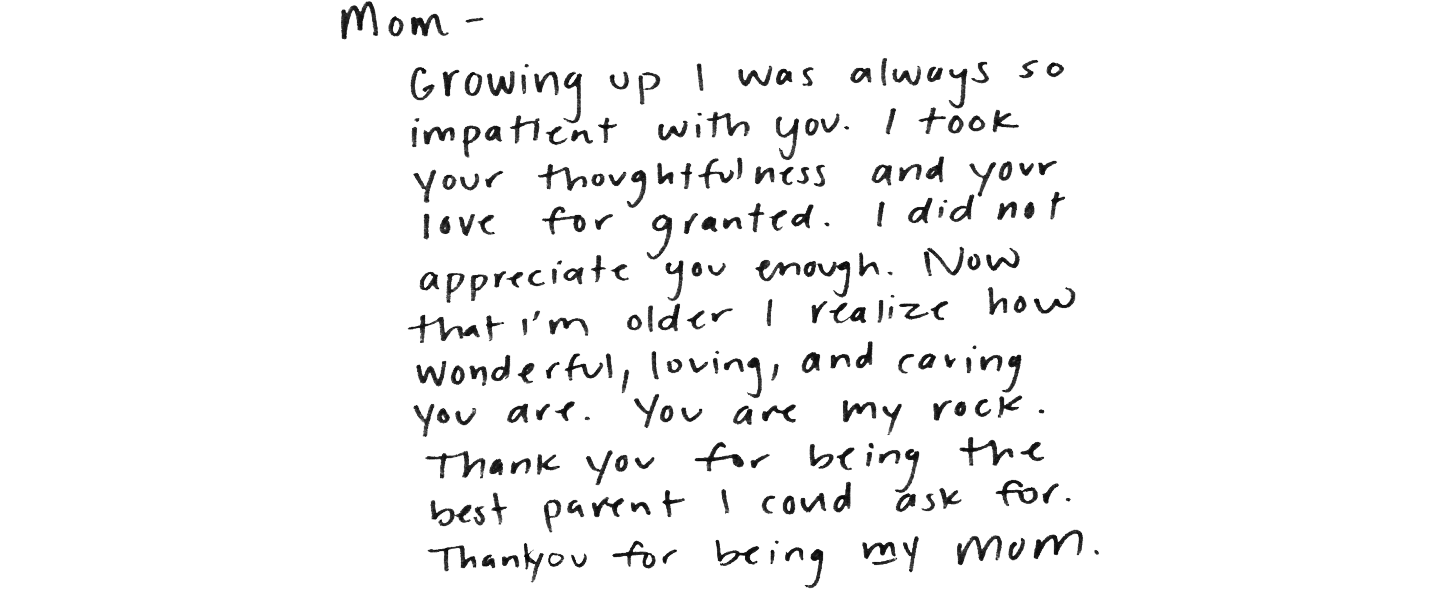 Mom -
Growing up I was always so
impatient with you. I took
your thoughtfulness and your
love for granted. I did not
appreciate you enough. Now
that I'm older I realize how
wonderful, loving, and caring
you are. You are my rock.
Thank you for being the
best parent I could ask for.
Thankyou for being my mom.